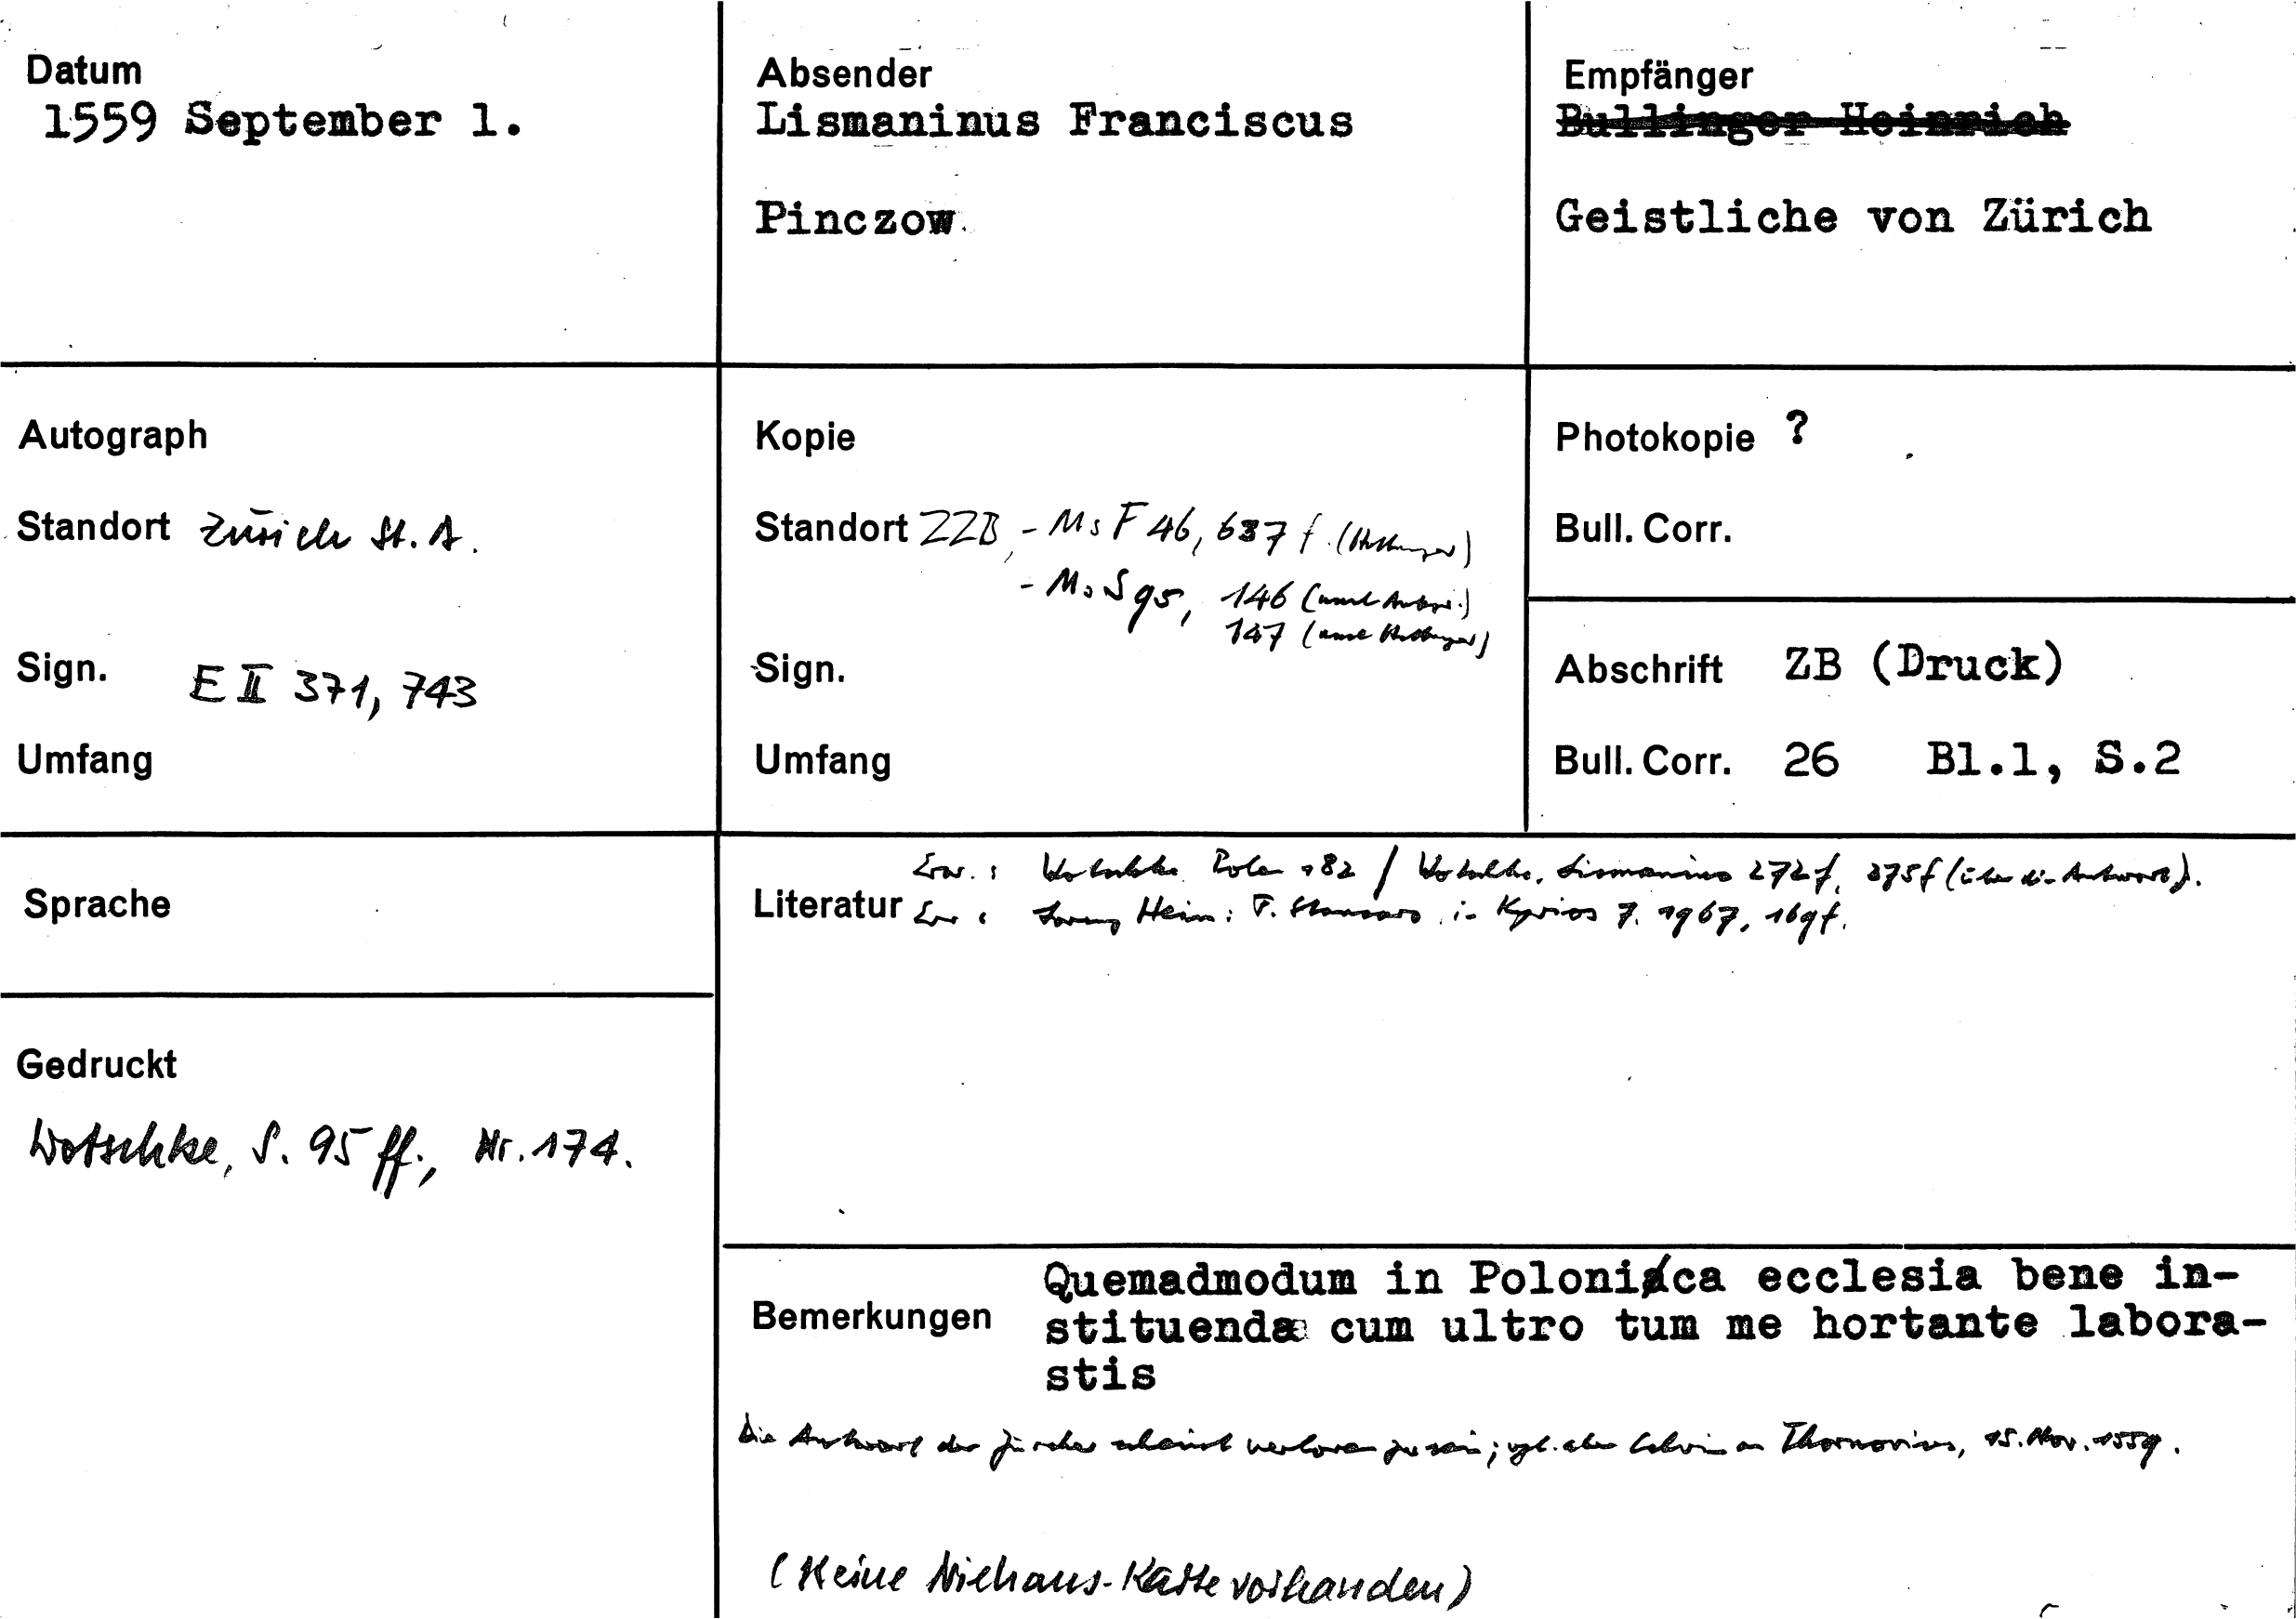 Datum
1559 September 1.
Absender
Lismaninus Franciscus
Pinczow
Empfänger
Bullinger Heinrich
Geistliche von Zürich
Autograph
Standort Zürich St. A.
Sign. E II 371, 743
Umfang
Kopie
Standort ZZB, - Ms F 46, 637 f. (Hottinger)
- Ms S 95, 146 (nach Autogr.)
147 (nach Hottinger)
Sign.
Umfang
Photokopie ?
Bull. Corr.
Abschrift ZB (Druck)
Bull. Corr. 26 Bl.1, S.2
Sprache
Gedruckt
Wotschke, S. 95 ff., Nr. 174.
Erw.: Wotschke Polen 182 / Wotschke, Lismanino 272 f, 275 f (über die Antwort).
Literatur Erw: Lorenz Hein: F. Stancaro, in Kyrios 7. 1967, 169 f.
Bemerkungen
Quemadmodum in Polonica ecclesia bene in-
stituenda cum ultro tum me hortante labora-
stis
Die Antwort der Zürcher scheint verloren zu sein; vgl. aber Calvin an Thornovius, 15. Nov. 1559.
(Keine Niehaus-Karte vorhanden)